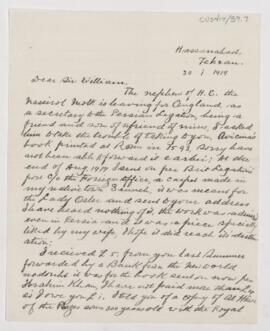 CUS417/39.7
Hassanabad.
Tehran.
20 i 1919
Dear Sir William,
The nephew of H.E. the
Nassirol Molk is leaving for England, as
a secretary to the Persian Legation, being a
friend and son of a friend of mine, I asked
him to take the trouble of taking to you Avicena's
book printed at Rom in 1593. Sorry have
not been able to forward it earlier; At the
end of Aug. I sent on per Brit. Legation
post c/o the Foreign office, a carpet made in
my native town Senneh, it was means for
the Lady Osler and sent to your address
I have heard nothing of it the work was done
even in Persia and it was a piece specially
liked by my wife I hope it did reach its destin-
ation;
I recieved £ 5. from you last Summer
forwarded by a Bank from the new world
no doubt it was for the book sent on you per
Ibrahim Khan, I have not paid more than £4
so I owe you £1. I told you of a copy of
of the years old with the Royal